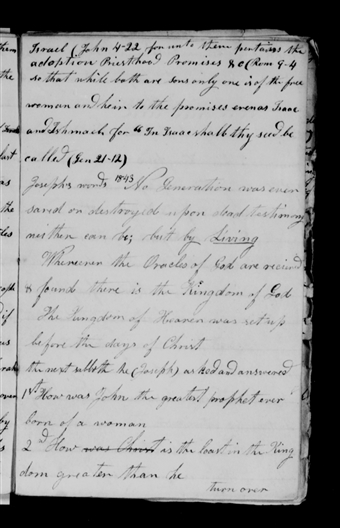 Israel (John 4-22 for unto them pertains the
adoption Priesthood Promises &c (Rom 9-4
so that while both are sons only one is of the free
woman and heir to the promises even as Isaac
and Ishmael for "In Isaac shall thy seed be
called (Gen 21-12)
Josephs words 1843 No Generation was ever
saved or destroyed upon dead testimony
neither can be; but by Living
Whereever the Oracles of God are recived
& found there is the Kingdom of God
The Kingdom of Heaven was set up
before the days of Christ
the next sabbth he (Joseph) asked and answered
1st How was John the greatest prophet ever
born of a woman
2nd How was Christ is the least in the King
dom greater than he
turn over